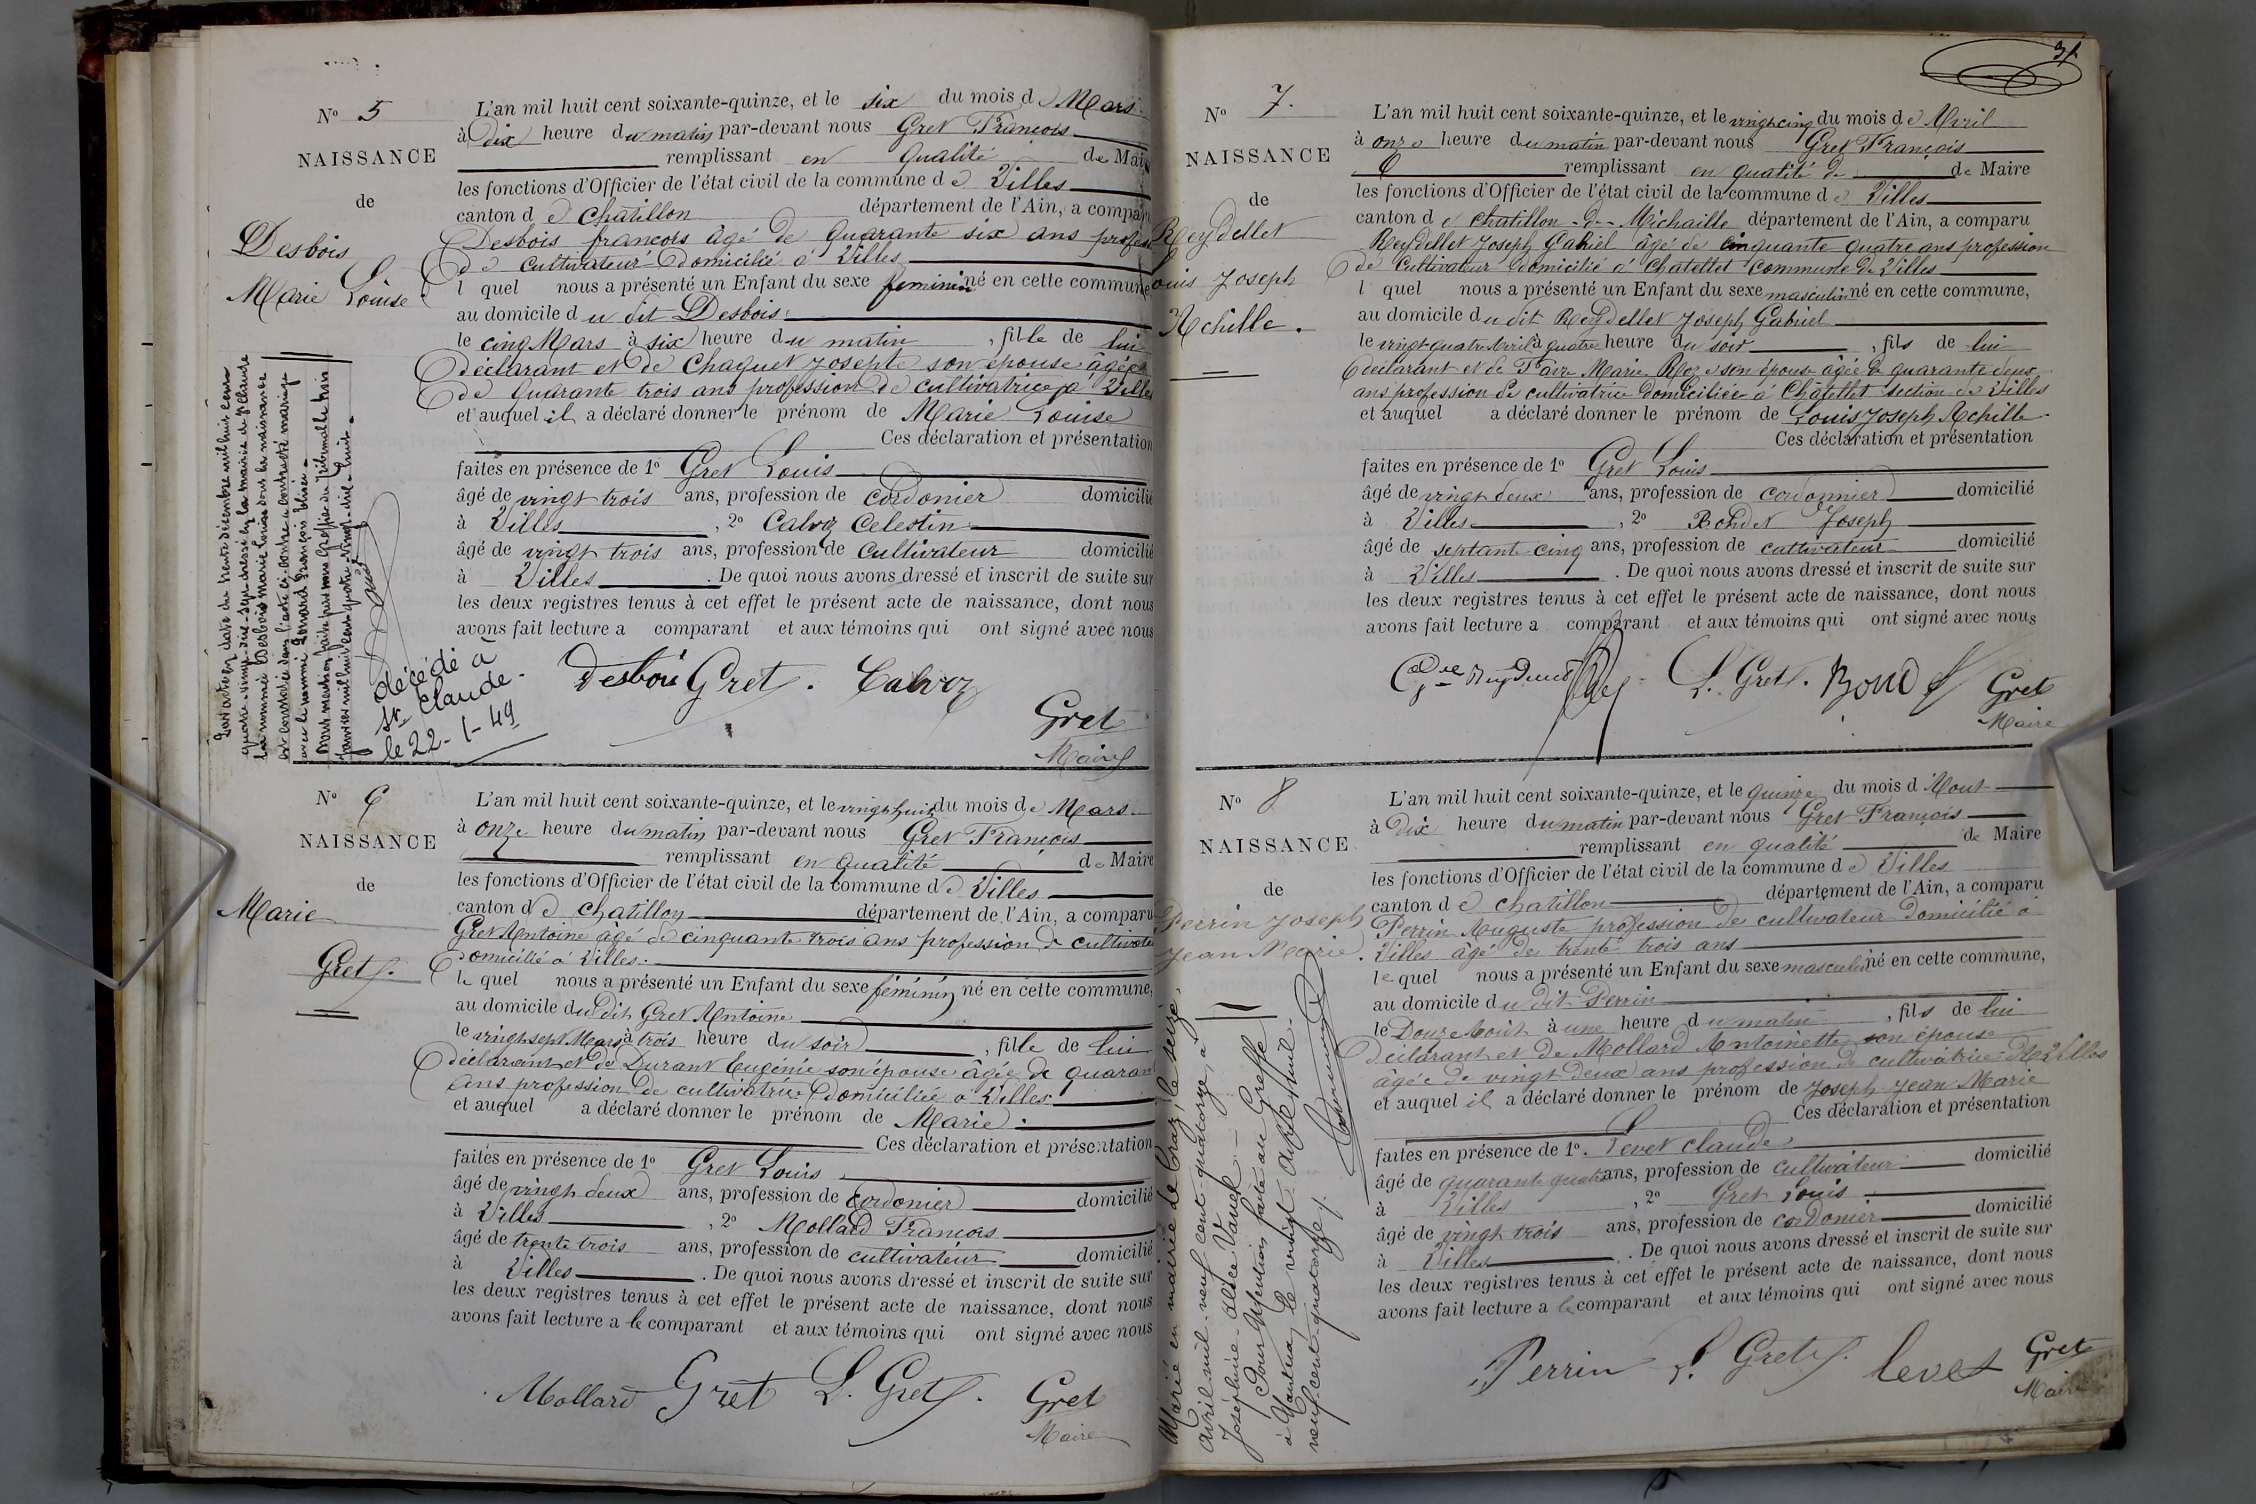 N° 5
NAISSANCE
de
Desbois
Marie Louise
L'an mil huit cent soixante-quinze, et le six du mois de Mars
à Dix heure du matin par-devant nous Gret François
remplissant en qualité de Maire
les fonctions d'Officier de l'état civil de la commune de Villes
canton de Chatillon département de l'Ain, a comparu
Desbois francois âgé de quarante six ans profess
de cultivateur domicilié à Villes
lequel nous a présenté un Enfant du sexe feminin né en cette commune
au domicile du dit Desbois
le cinq Mars à six heure du matin, fille de lui
déclarant et de Chaquet Josepte son épouse âgée
de quarante trois ans profession de cultivatrice a Villes
et auquel il a déclaré donner le prénom de Marie Louise
Ces déclaration et présentation
faites en présence de 1° Gret Louis
âgé de vingt trois ans, profession de cordonier domicilié
à Villes, 2° Calvoz Celestin
âgé de vingt trois ans, profession de cultivateur domicilié
à Villes. De quoi nous avons dressé et inscrit de suite sur
les deux registres tenus à cet effet le présent acte de naissance, dont nous
avons fait lecture a comparant et aux témoins qui ont signé avec nous
Desboi Gret. Calvoz
Gret
Maire
Par acte en date du trente décembre mil huit cent
quatre-vingt-dix-sept dressé en la mairie de
la nommée Desbois Marie Louise dont la naissance
est constatée dans l'acte ci-contre a contracté mariage
avec le nommé François
Pour mention faite par nous Greffier du Tribunal le trois
Janvier mil huit cent quatre-vingt-dix-huit.
décédé à
St Claude.
le 22-1-49
N° 6
NAISSANCE
de
Marie
Gret.
L'an mil huit cent soixante-quinze, et le vingt huit du mois de Mars
à onze heure du matin par-devant nous Gret François
remplissant en qualité de Maire
les fonctions d'Officier de l'état civil de la commune de Villes
canton de chatillon département de l'Ain, a comparu
Gret Antoine agé de cinquante trois ans profession de cultivate
Domicilié à Villes.
le quel nous a présenté un Enfant du sexe féminin né en cette commune,
au domicile du dit Gret Antoine
le vingt sept Mars à trois heure du soir, fille de lui
déclarant et de Durant Eugénie son épouse âgée de quaran
ans profession de cultivatrice domiciliée à Villes
et auquel a déclaré donner le prénom de Marie.
Ces déclaration et présentation
faites en présence de 1° Gret Louis
âgé de vingt deux ans, profession de Cordonier domicilié
à Villes, 2° Mollard François
âgé de trente trois ans, profession de cultivateur domicilié
à Villes. De quoi nous avons dressé et inscrit de suite sur
les deux registres tenus à cet effet le présent acte de naissance, dont nous
avons fait lecture a le comparant et aux témoins qui ont signé avec nous
Mollard Gret L. Gret. Gret
Maire
31
N° 7.
NAISSANCE
de
Reydellet
ouis Joseph
Achille.
L'an mil huit cent soixante-quinze, et le vingt cinq du mois de Avril
à onze heure du matin par-devant nous Gret François
remplissant en qualité de de Maire
les fonctions d'Officier de l'état civil de la commune de Villes
canton de chatillon-de-Michaille département de l'Ain, a comparu
Reydellet Joseph Gabriel âgé de cinquante quatre ans profession
de Cultivateur domicilié à Chatellet commune de Villes
l quel nous a présenté un Enfant du sexe masculin né en cette commune,
au domicile du dit Reydellet Joseph Gabriel
le vingt quatre Avril à quatre heure du soir, fils de lui
déclarant et de Favre Marie Roze son épouse âgée de quarante deux
ans profession de cultivatrice domiciliée à Châtellet section de Villes
et auquel a déclaré donner le prénom de Louis Joseph Achille.
Ces déclaration et présentation
faites en présence de 1° Gret Louis
âgé de vingt deux ans, profession de cordonnier domicilié
à Villes, 2° Bondet Joseph
âgé de septante cinq ans, profession de cultivateur domicilié
à Villes. De quoi nous avons dressé et inscrit de suite sur
les deux registres tenus à cet effet le présent acte de naissance, dont nous
avons fait lecture a comparant et aux témoins qui ont signé avec nous
L. Gret. Bond Gret
Maire
N° 8
NAISSANCE
de
Perrin Joseph
Jean Marie.
L'an mil huit cent soixante-quinze, et le quinze du mois d Aout
à Dix heure du matin par-devant nous Gret François
remplissant en qualité de Maire
les fonctions d'Officier de l'état civil de la commune de Villes
canton de chatillon département de l'Ain, a comparu
Perrin Auguste profession de cultivateur Domicilié à
Villes âgé de trente trois ans
le quel nous a présenté un Enfant du sexe masculin né en cette commune,
au domicile du dit Perrin
le Douze Août à une heure du matin, fils de lui
déclarant et de Mollard Antoinette son épouse
âgée de vingt deux ans profession de cultivatrice de Villes
et auquel il a déclaré donner le prénom de Joseph Jean Marie
Ces déclaration et présentation
faites en présence de 1°. Levet claude
âgé de quarante quatre ans, profession de cultivateur domicilié
à Villes, 2° Gret Louis
âgé de vingt trois ans, profession de cordonier domicilié
à Villes. De quoi nous avons dressé et inscrit de suite sur
les deux registres tenus à cet effet le présent acte de naissance, dont nous
avons fait lecture a le comparant et aux témoins qui ont signé avec nous
Perrin L. Gret. Levet Gret
Maire
Marié en mairie de Craz, le seize
Avril mil-neuf-cent quatorze, à
Joséphine-Alice Vauel.
Pour Mention faite au Greffe
à Nantua, le vingt Avril mil-
neuf-cent-quatorze.